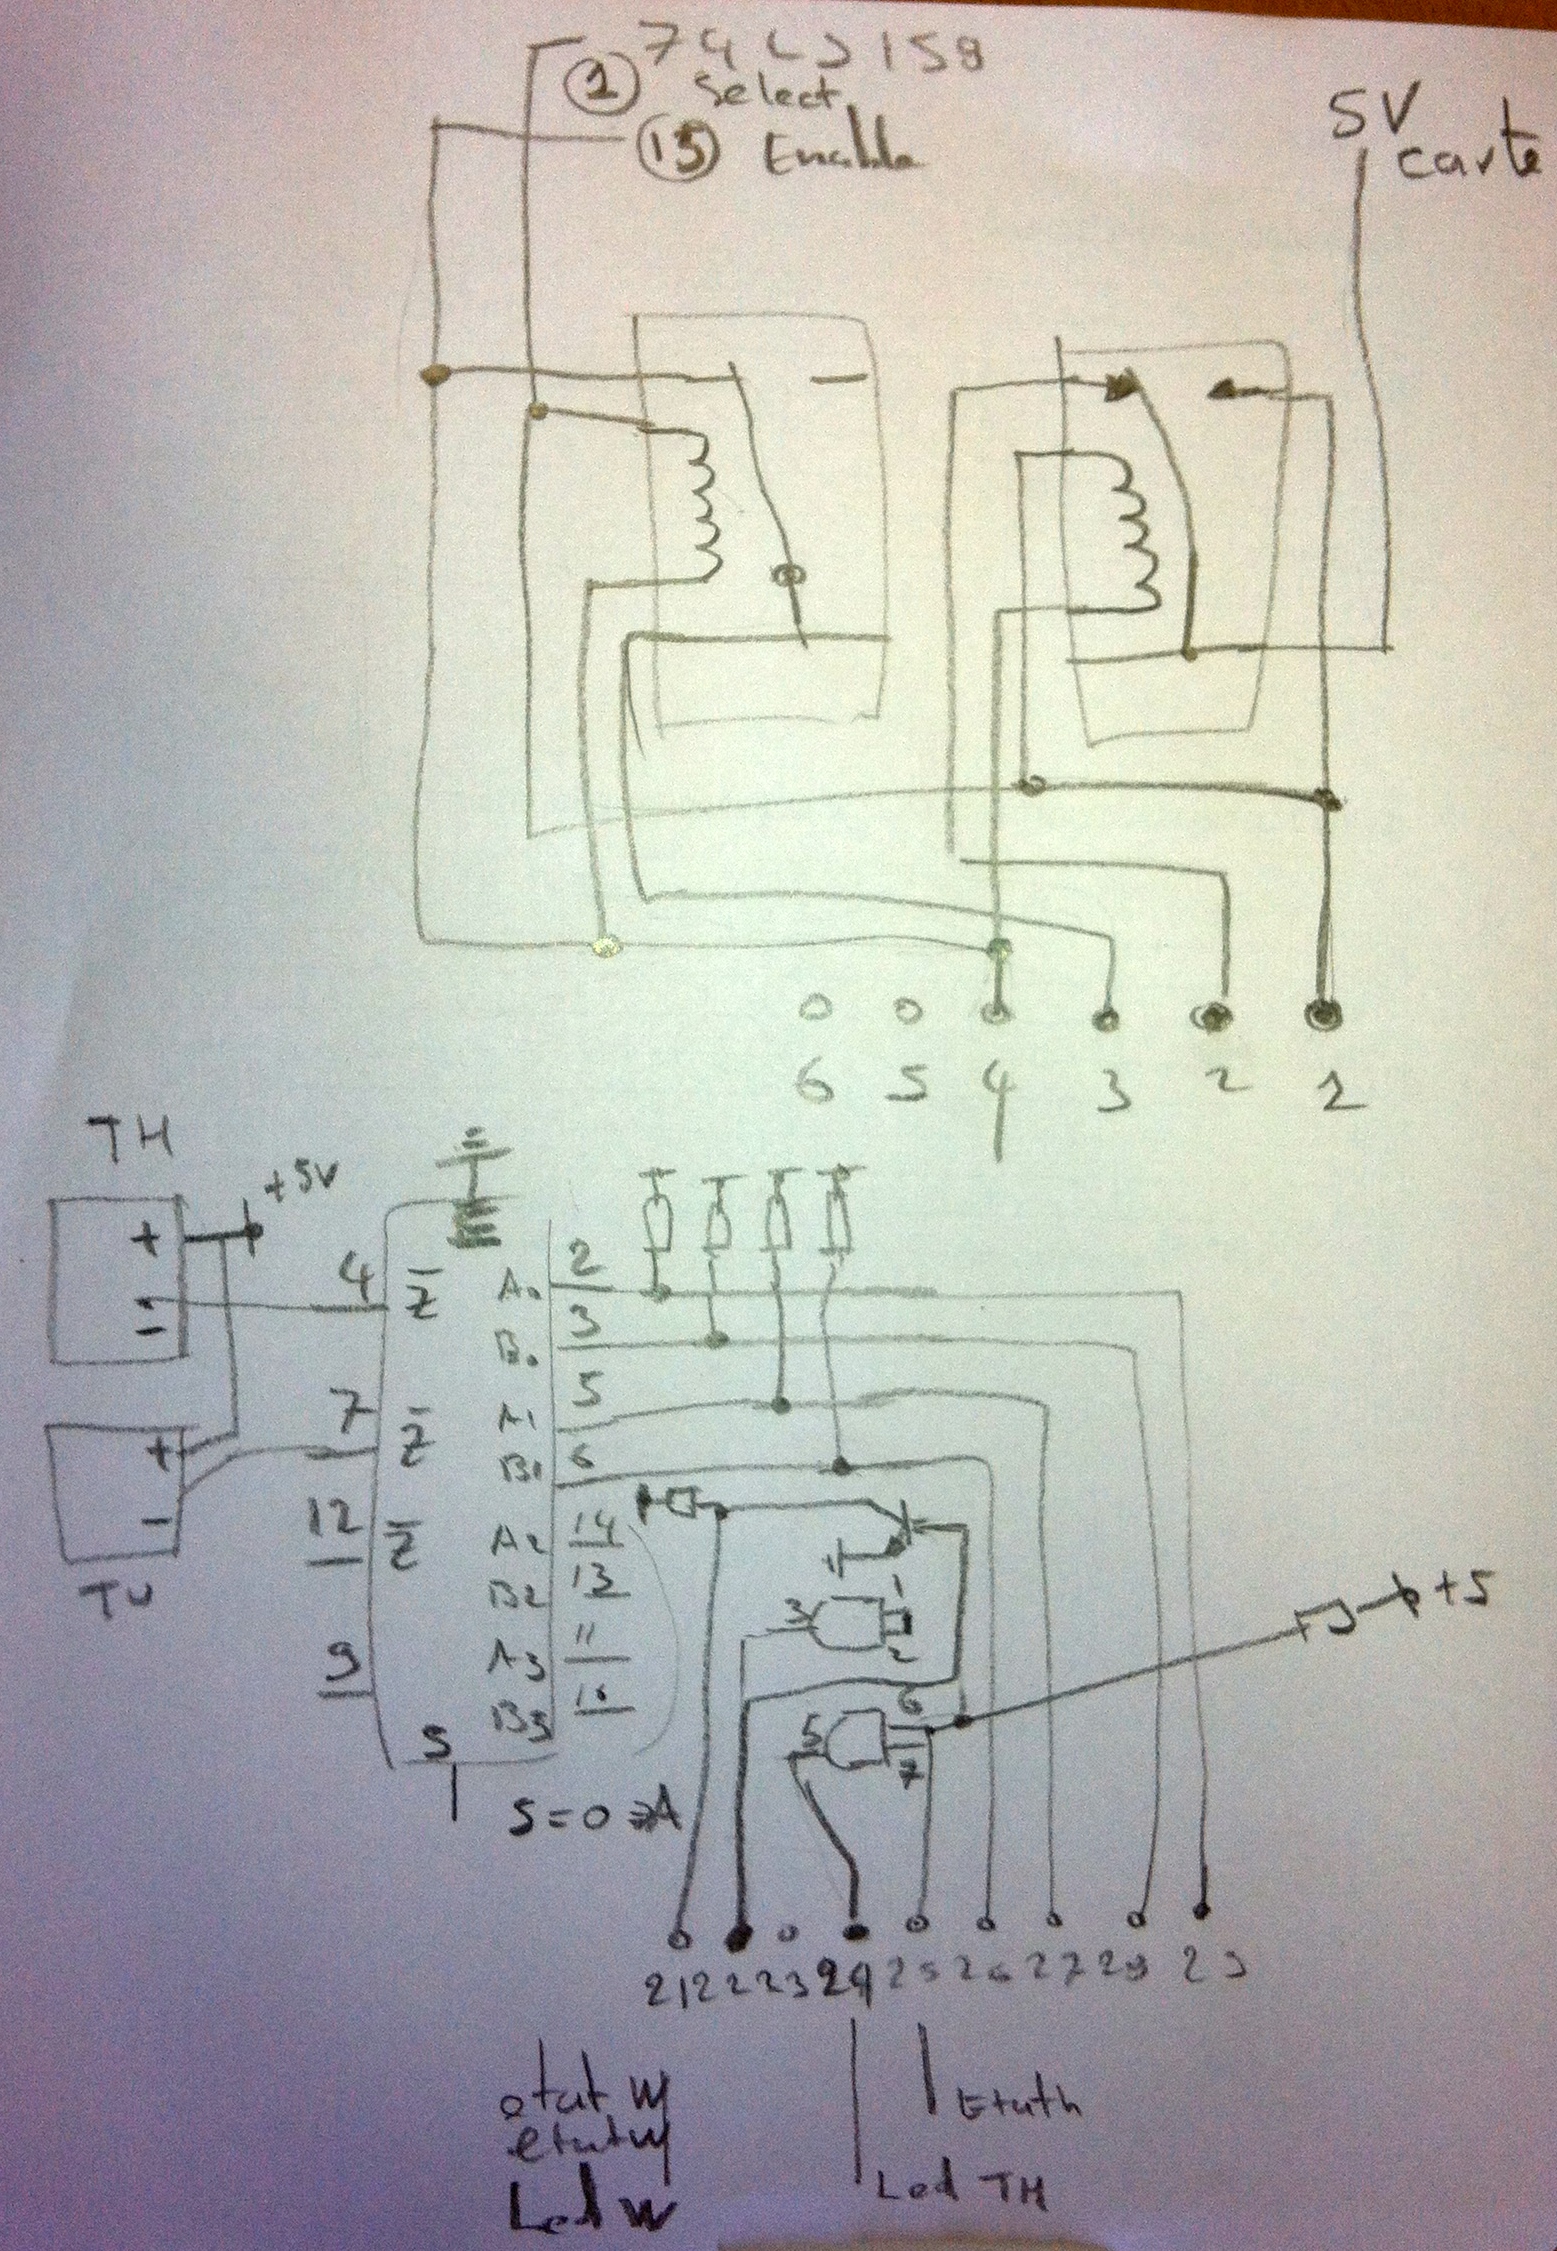 74LS158
1 Select
15 Enable
5V
carte
6 5 4 3 2 1
TH
+5V
+
-
4 Z̄
A0 2
B0 3
7 Z̄
A1 5
B1 6
+
-
TV
12 Z̄
A2 14
B2 13
9
A3 11
B3 10
S
S=0 => A
3 1
2
5 6
7
+5
21 22 23 24 25 26 27 28 29
etat
etat
Led
Led TH